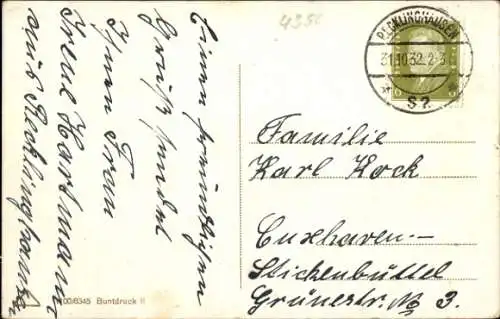 4351
RECKLINGHAUSEN
31.10.32.2-3
* S2 *
6
Einen freundlichen
Gruß sendet
Ihnen Frau
Irene Hartmann
aus Recklinghausen
Familie
Karl Kock
Cuxhaven-
Stickenbüttel
Grünestr. No 3.
Buntdruck II